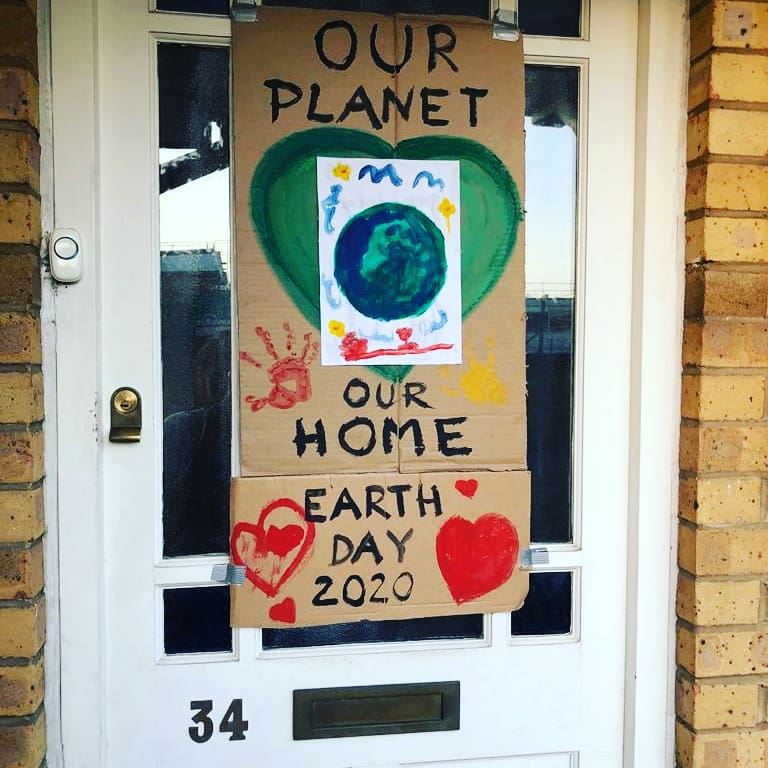 OUR
PLANET
OUR
HOME
EARTH
DAY
2020
34